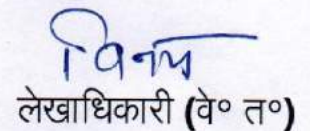 विनय
लेखाधिकारी (वे० त०)